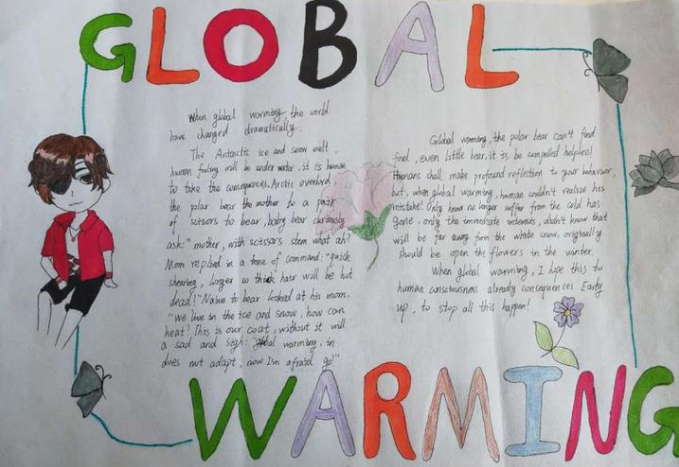 GLOBAL
When global warming the world
have changed dramatically.
The Antractic ice and snow melt,
human facing will be under water, it is human
to take the consequences. Arctic overlord,
the polar bear the mother to a pair
of scissors to bear, baby bear curiously
ask:" mother, with scissors stem what ah?
Mom replied in a tone of command: "quick
shearing, longer so thick hair will be hot
dead!" Naive to bear looked at his mom.
"we live in the ice and snow, how can
heat? This is our coat, without it will
a sad and sigh: global warming, in
does not adapt, now I'm afraid go!"
Global warming, the polar bear can't find
food, even little bear, it is be compelled helpless!
Humans shall make profound reflection to your behaviour,
but, when global warming, human couldn't realise his
mistake! Only know no longer suffer from the cold has
gone. only the immediate interests, didn't know that
will be far away form the white snow. originally
should be open the flowers in the winter.
When global warming, I hope this to
human consciousness already consequences Early
up, to stop all this happen!
WARMING